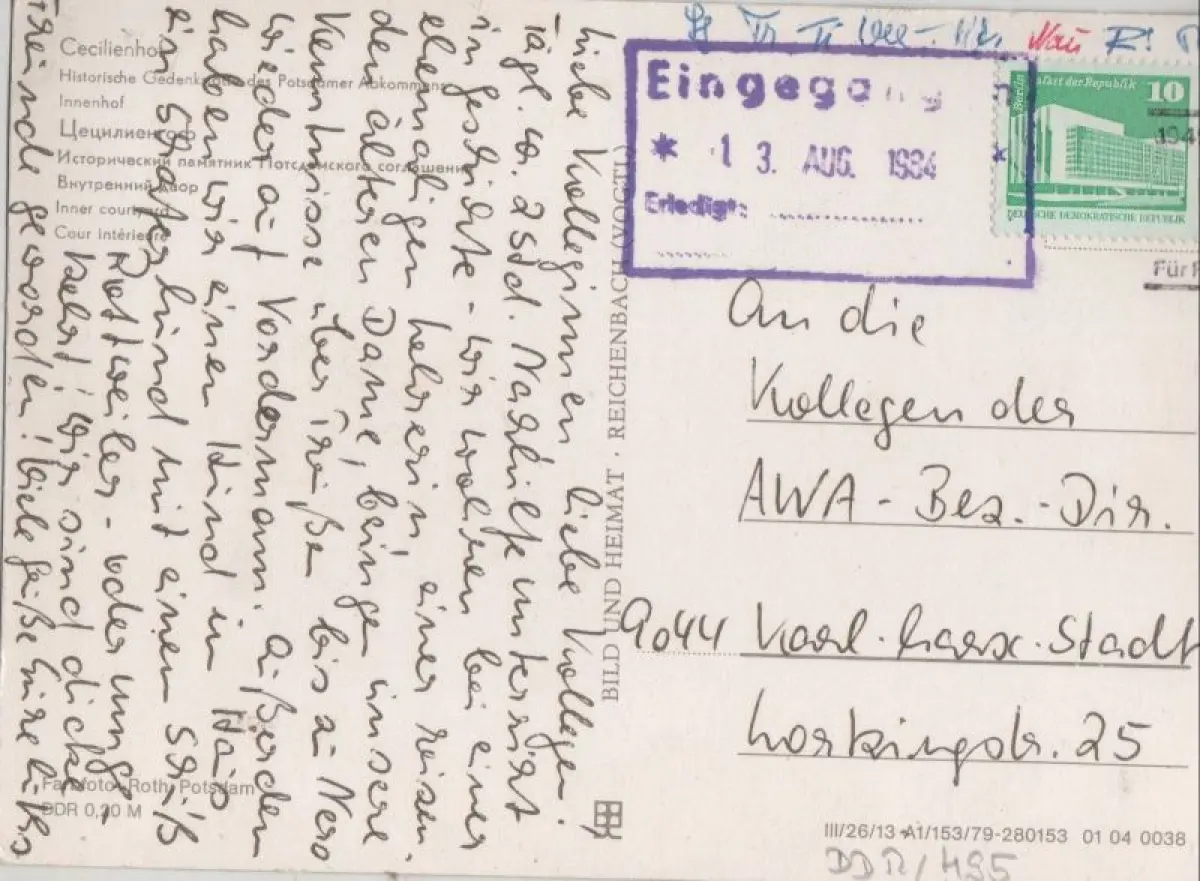 Cecilienhof
Historische Gedenkstätte des Potsdamer Abkommens
Innenhof
Цецилиенгоф
Исторический памятник Потсдамского соглашения
Внутренний двор
Inner courtyard
Cour intérieure
Liebe Kolleginnen liebe Kollegen!
Tägl. ca. 2 Std. Nachhilfeunterricht
in Geschichte - wir wohnen bei einer
ehemaligen Lehrerin, einer reizen
den älteren Dame, bringen unsere
Kenntnisse über bis zu Nero
wieder auf Vordermann. Außerdem
haben wir einen Hund im Haus
ein mit einem Schuß
Rottweiler - oder umge-
kehrt; wir sind dicke
Freunde geworden! Viele Grüße Eure
Farbfoto: Roth, Potsdam
DDR 0,20 M
BILD UND HEIMAT · REICHENBACH (VOGTL)
Eingegang
* 13. AUG. 1984
Erledigt:
Berlin Palast der Republik
10
DEUTSCHE DEMOKRATISCHE REPUBLIK
Für
An die
Kollegen der
AWA - Bez. - Dir.
9044 Karl-Marx-Stadt
Lortzingstr. 25
III/26/13 A1/153/79-280153 01 04 0038
DDR/495